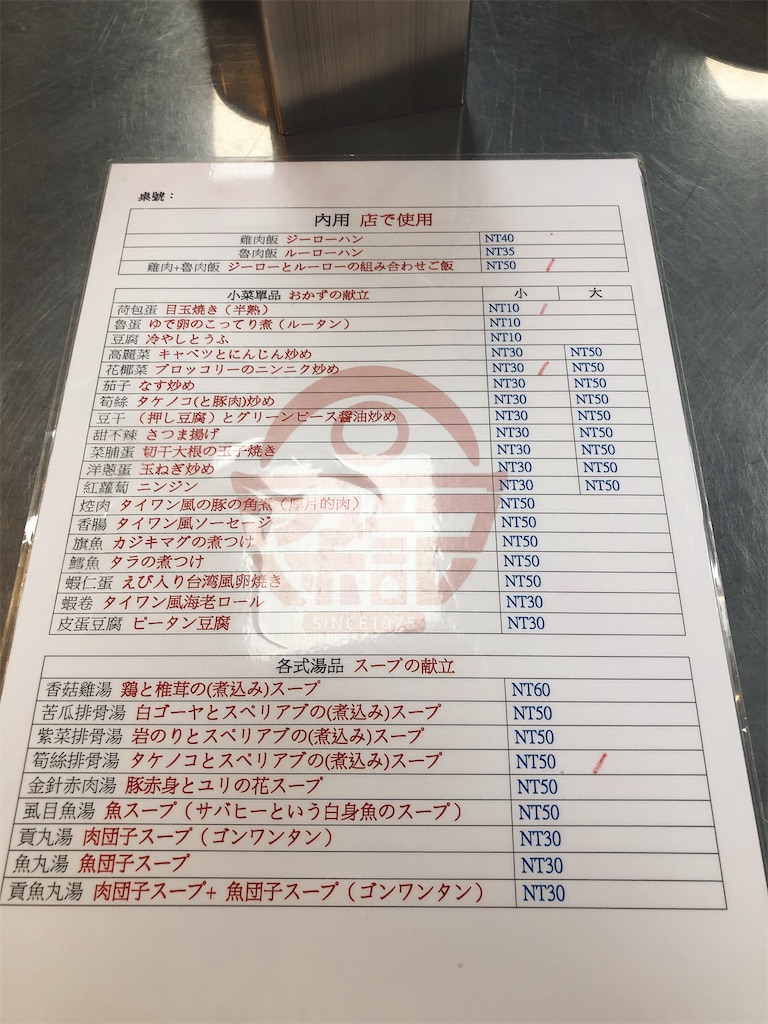 桌號：
內用 店で使用
雞肉飯 ジーローハン NT40
魯肉飯 ルーローハン NT35
雞肉+魯肉飯 ジーローとルーローの組み合わせご飯 NT50
小菜單品 おかずの献立 小 大
荷包蛋 目玉焼き（半熟） NT10
魯蛋 ゆで卵のこってり煮（ルータン） NT10
豆腐 冷やしとうふ NT10
高麗菜 キャベツとにんじん炒め NT30 NT50
花椰菜 ブロッコリーのニンニク炒め NT30 NT50
茄子 なす炒め NT30 NT50
筍絲 タケノコ(と豚肉)炒め NT30 NT50
豆干 （押し豆腐）とグリーンピース醤油炒め NT30 NT50
甜不辣 さつま揚げ NT30 NT50
菜脯蛋 切干大根の玉子焼き NT30 NT50
洋蔥蛋 玉ねぎ炒め NT30 NT50
紅蘿蔔 ニンジン NT30 NT50
焢肉 タイワン風の豚の角煮（厚片的肉） NT50
香腸 タイワン風ソーセージ NT50
旗魚 カジキマグの煮つけ NT50
鱈魚 タラの煮つけ NT50
蝦仁蛋 えび入り台湾風卵焼き NT50
蝦卷 タイワン風海老ロール NT30
皮蛋豆腐 ピータン豆腐 NT30
SINCE1975
各式湯品 スープの献立
香菇雞湯 鶏と椎茸の(煮込み)スープ NT60
苦瓜排骨湯 白ゴーヤとスペリアブの(煮込み)スープ NT50
紫菜排骨湯 岩のりとスペリアブの(煮込み)スープ NT50
筍絲排骨湯 タケノコとスペリアブの(煮込み)スープ NT50
金針赤肉湯 豚赤身とユリの花スープ NT50
虱目魚湯 魚スープ（サバヒーという白身魚のスープ） NT50
貢丸湯 肉団子スープ（ゴンワンタン） NT30
魚丸湯 魚団子スープ NT30
貢魚丸湯 肉団子スープ+ 魚団子スープ（ゴンワンタン） NT30